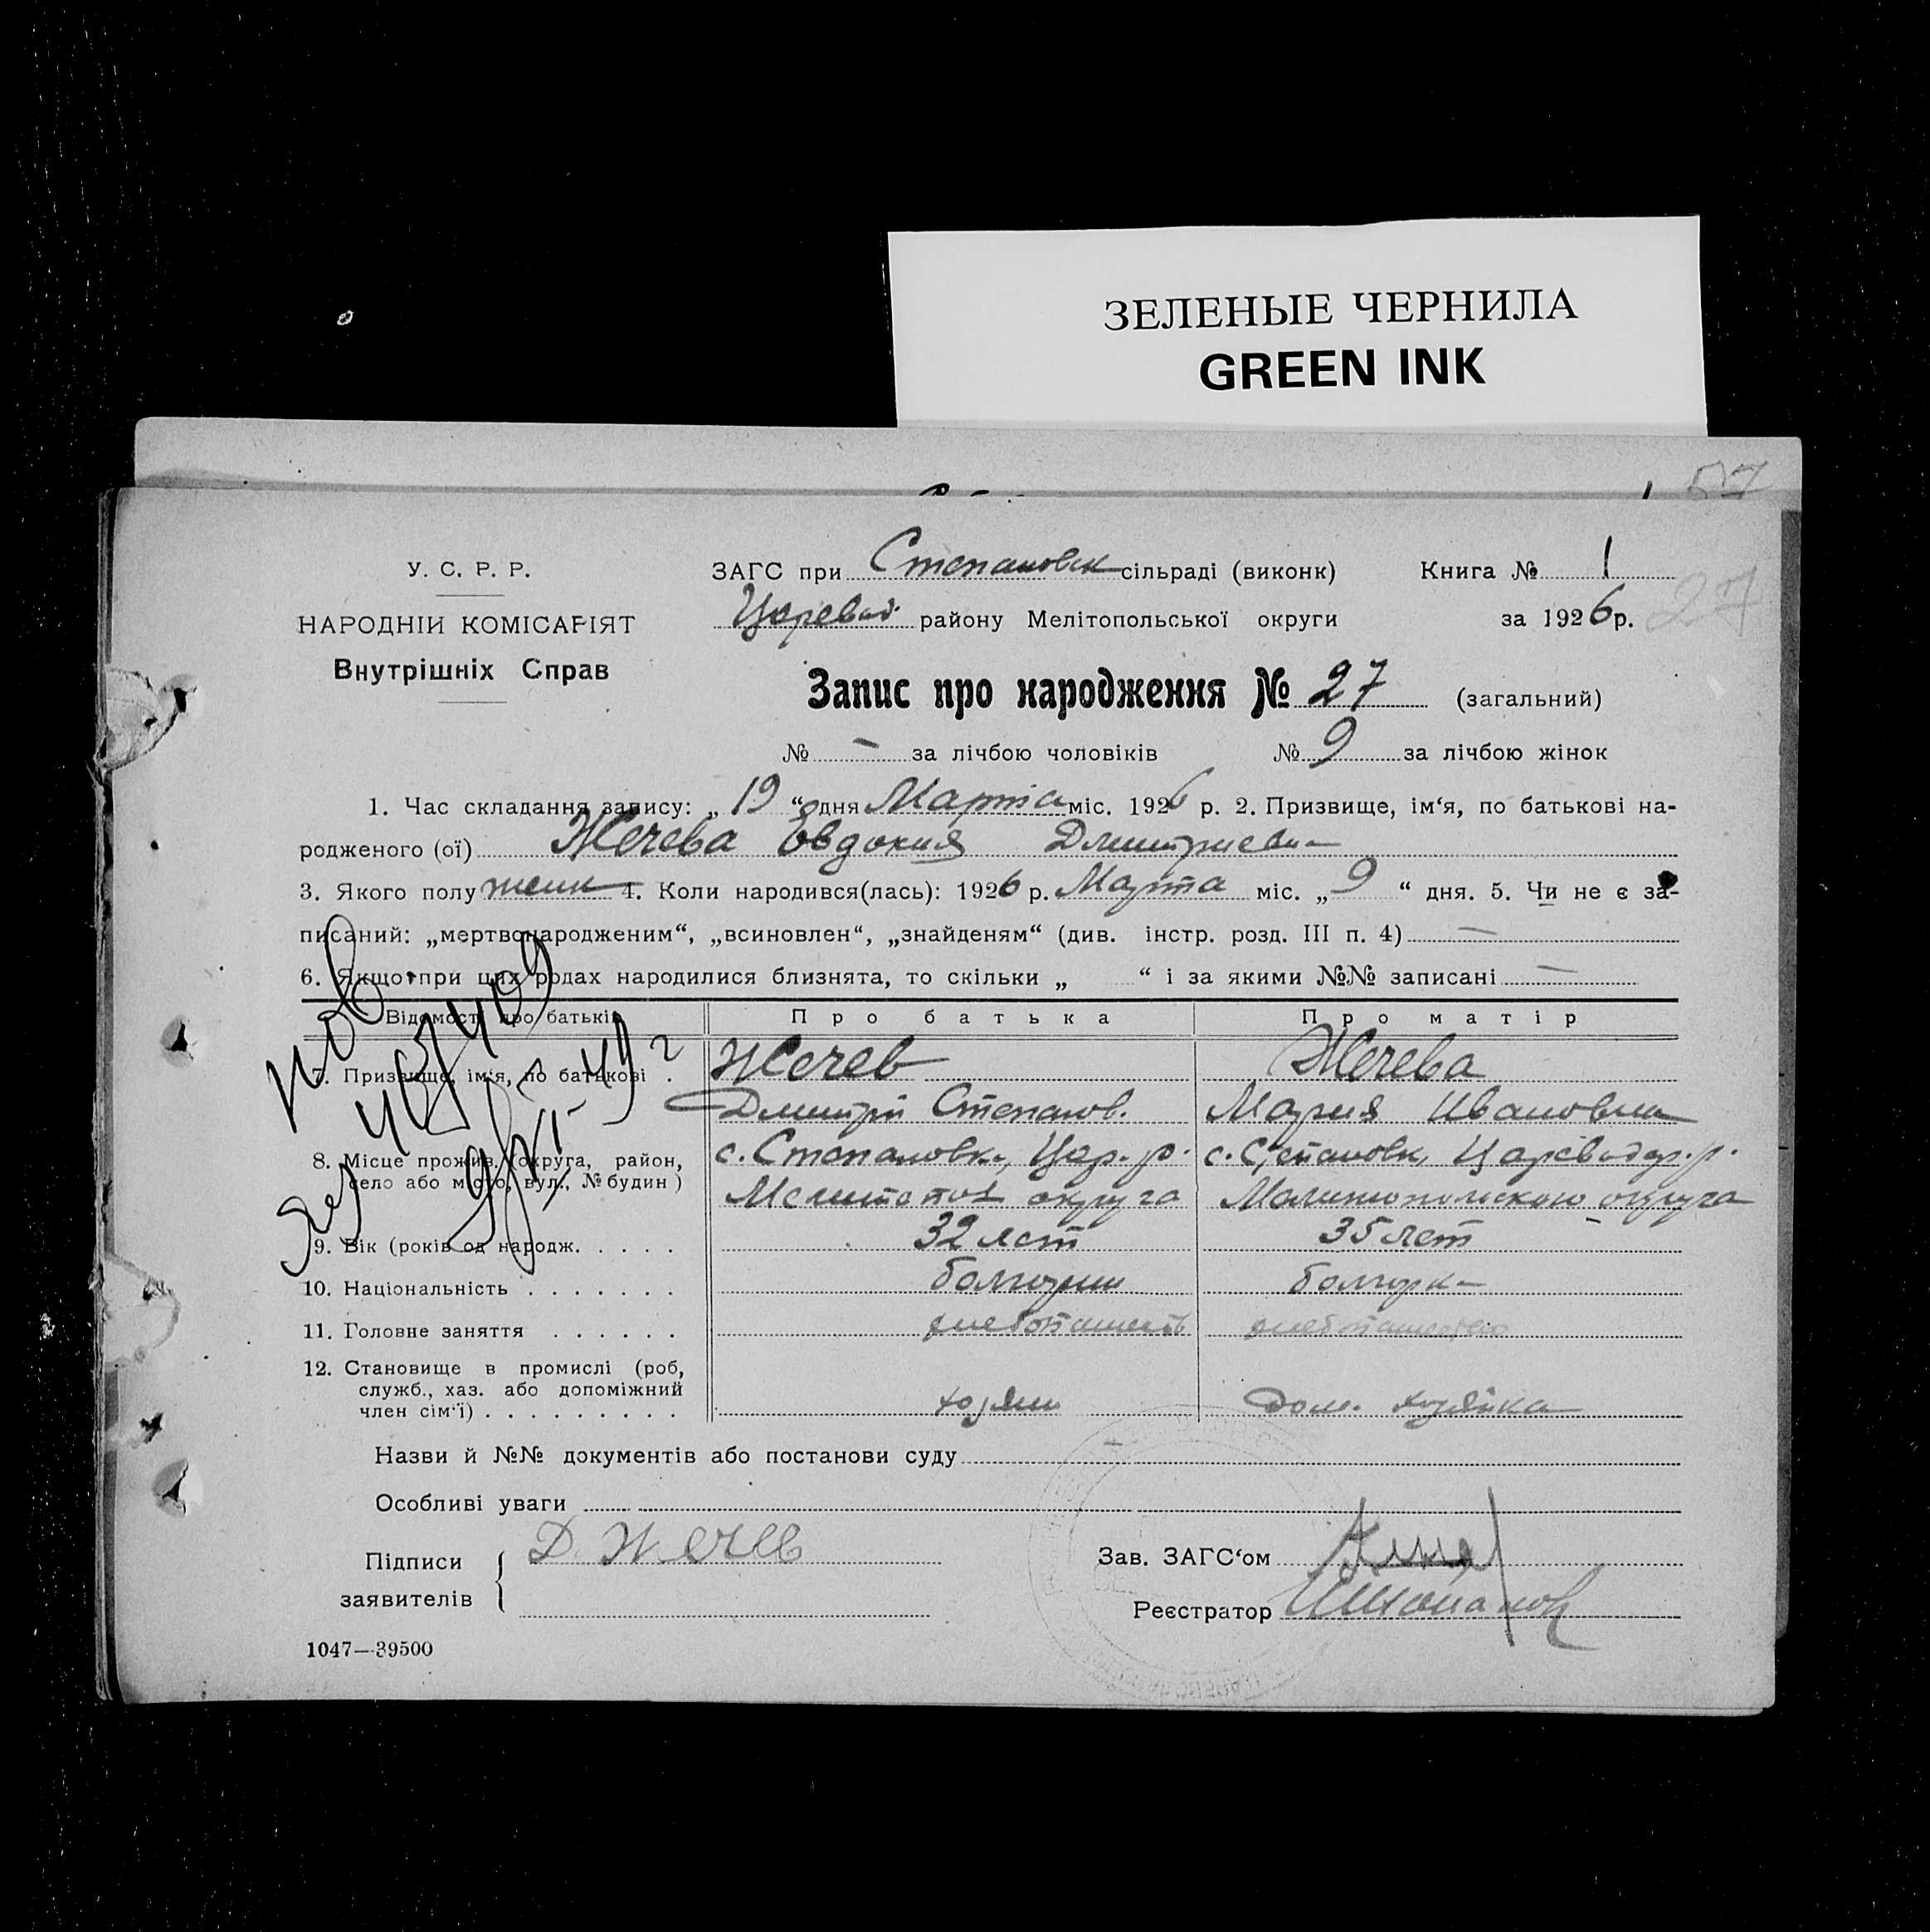 ЗЕЛЕНЫЕ ЧЕРНИЛА
GREEN INK
57
У. С. Р. Р.
НАРОДНІЙ КОМІСАРІЯТ
Внутрішніх Справ
ЗАГС при Степановск сільраді (виконк) Книга № 1
Царевод. району Мелітопольської округи за 1926 р. 27
Запис про народження № 27 (загальний)
№ — за лічбою чоловіків № 9 за лічбою жінок
1. Час складання запису: „ 19 “ дня Марта міс. 1926 р. 2. Призвище, ім‘я, по батькові на-
родженого (ої) Жечева Евдокия Дмитриевна
3. Якого полу женк 4. Коли народився(лась): 1926 р. Марта міс. „ 9 “ дня. 5. Чи не є за-
писаний: „мертвонародженим“, „всиновлен“, „знайденям“ (див. інстр. розд. III п. 4) —
6. Якщо при цих родах народилися близнята, то скільки „ “ і за якими №№ записані —
Відомості про батьків Про батька Про матір
7. Призвище, ім‘я, по батькові . Жечев Жечева
Дмитрий Степанов. Мария Ивановна
8. Місце прожив. (округа, район, с. Степановк., Цар. р. с. Степановк, Цареводар. р.
село або місто, вул., № будин) Мелитопол округа Мелитопольского округа
9. Вік (років од народж. . . . . 32 лет 35 лет
10. Національність . . . . . . . болгарин болгарка
11. Головне заняття . . . . . . хлебопашеств хлебопашество
12. Становище в промислі (роб,
служб., хаз. або допоміжний
член сім‘ї) . . . . . . . . . хозяин Дом. хозяйка
Назви й №№ документів або постанови суду —
Особливі уваги
Підписи Д. Жечев Зав. ЗАГС‘ом
заявителів Реєстратор
1047—39500